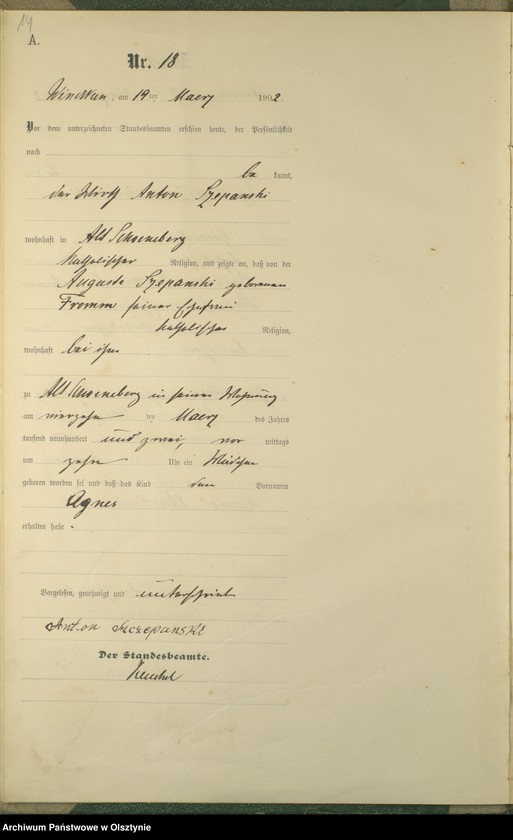 14
A.
Nr. 18
am 19 ten Maerz 1902.
Vor dem unterzeichneten Standesbeamten erschien heute, der Persönlichkeit
nach
be kannt,
der Wirth Anton Szepanski
wohnhaft in Alt Schoeneberg
katholischer Religion, und zeigte an, daß von der
Auguste Szepanski geborenen
Fromm seiner Ehefrau
katholischer Religion,
wohnhaft bei ihm
zu Alt Schoeneberg in seiner Wohnung
am vierzehn ten Maerz des Jahres
tausend neunhundert und zwei, vor mittags
um zehn Uhr ein Mädchen
geboren worden sei und daß das Kind den Vornamen
Agnes
erhalten habe.
Vorgelesen, genehmigt und unterschrieben
Anton Szczepanski
Der Standesbeamte.
Archiwum Państwowe w Olsztynie